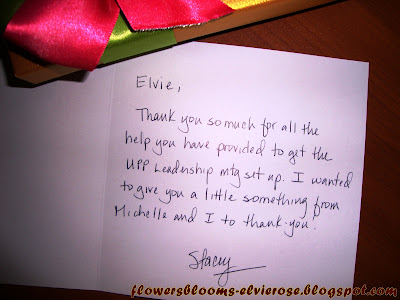 Elvie,
Thank you so much for all the
help you have provided to get the
UPP Leadership mtg set up. I wanted
to give you a little something from
Michelle and I to thank you.
Stacey
flowersblooms-elvierose.blogspot.com